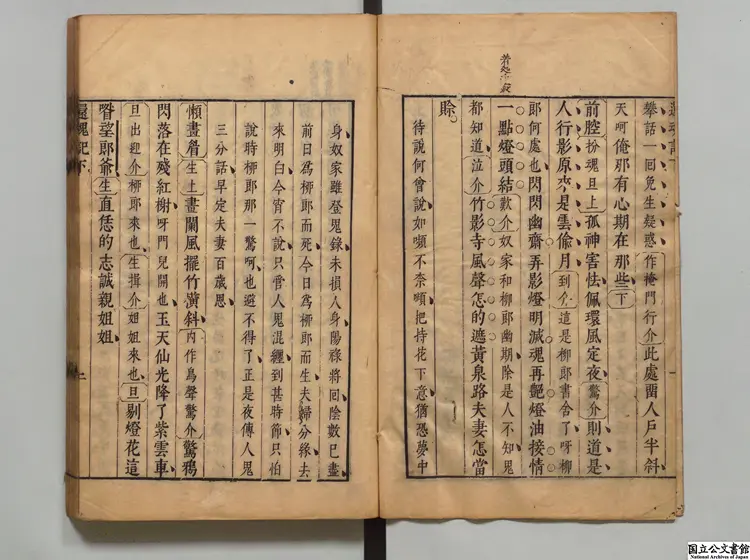 攀話一回免生疑惑作掩門行介此處畱人戶半斜
天呵俺那有心期在那些下
前腔扮魂旦上孤神害怯佩環風定夜驚介則道是
人行影原來是雲偷月到介這是柳郎書舍了呀柳
郎何處也閃閃幽齋弄影燈明滅魂再艷燈油接情
一點燈頭結歎介奴家和柳郎幽期除是人不知鬼
都知道泣介竹影寺風聲怎的遮黃泉路夫妻怎當
賒
待說何曾說如嚬不奈嚬把持花下意猶恐夢中
身奴家雖登鬼錄未損人身陽祿將回陰數已盡
前日為柳郎而死今日為柳郎而生夫婦分緣去
來明白今宵不說只管人鬼混纏到甚時節只怕
說時柳郎那一驚呵也避不得了正是夜傳人鬼
三分話早定夫妻百歲恩
懶畫眉生上畫闌風擺竹橫斜內作鳥聲驚介驚鴉
閃落在殘紅榭呀門兒開也玉天仙光降了紫雲車
旦出迎介柳郎來也生揖介姐姐來也旦剔燈花這
咱望郎爺生直恁的志誠親姐姐
還魂記下
二
国立公文書館
National Archives of Japan